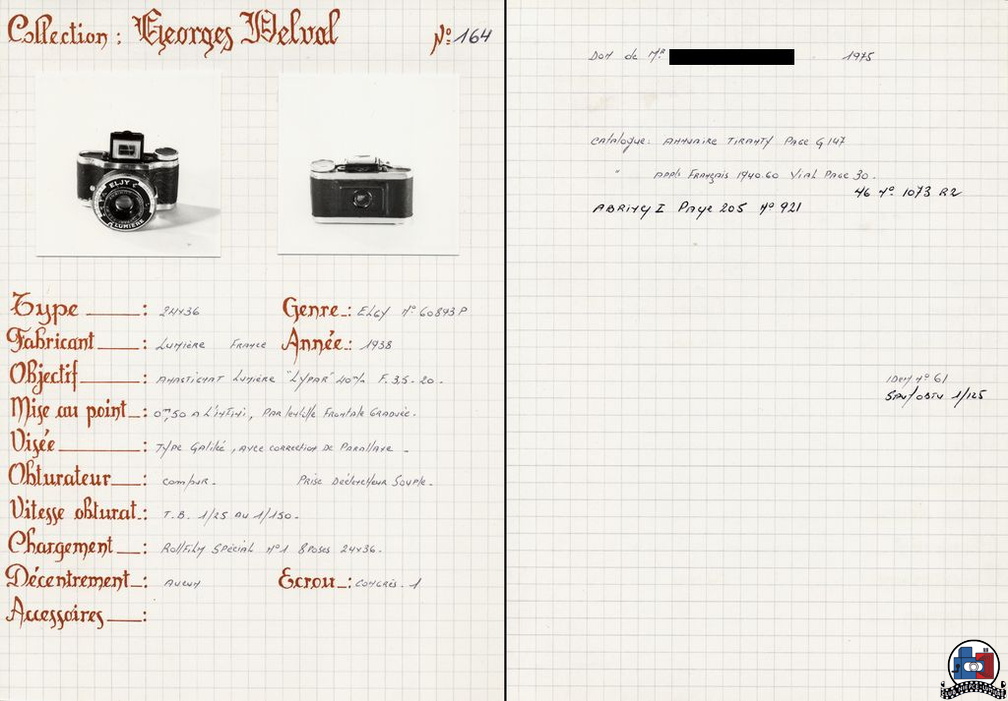 Collection : Georges Delval Nº 164
ELJY
LUMIÈRE
Type : 24x36 Genre : ELGY Nº 60893 P
Fabricant : Lumière France Année : 1938
Objectif : Anastigmat Lumière "Lypar" 40m/m F. 3,5 - 20 -
Mise au point : 0m,50 A L'infini, Par lentille Frontale Graduée.
Visée : Type Galilée, avec correction de Parallaxe -
Obturateur : Compur - Prise Déclencheur Souple -
Vitesse obturat. : T.B. 1/25 Au 1/150 -
Chargement : Rollfilm Spécial nº1 8 Poses 24x36 -
Décentrement : Aucun Ecrou : Congrès - 1
Accessoires :
Don de Mr 1975
Catalogue : Annuaire Tiranty Page G 147
" App. Français 1940.60 Vial Page 30 -
46 Nº 1073 R2
ABRING I Page 205 Nº 921
Idem nº 61
1/125